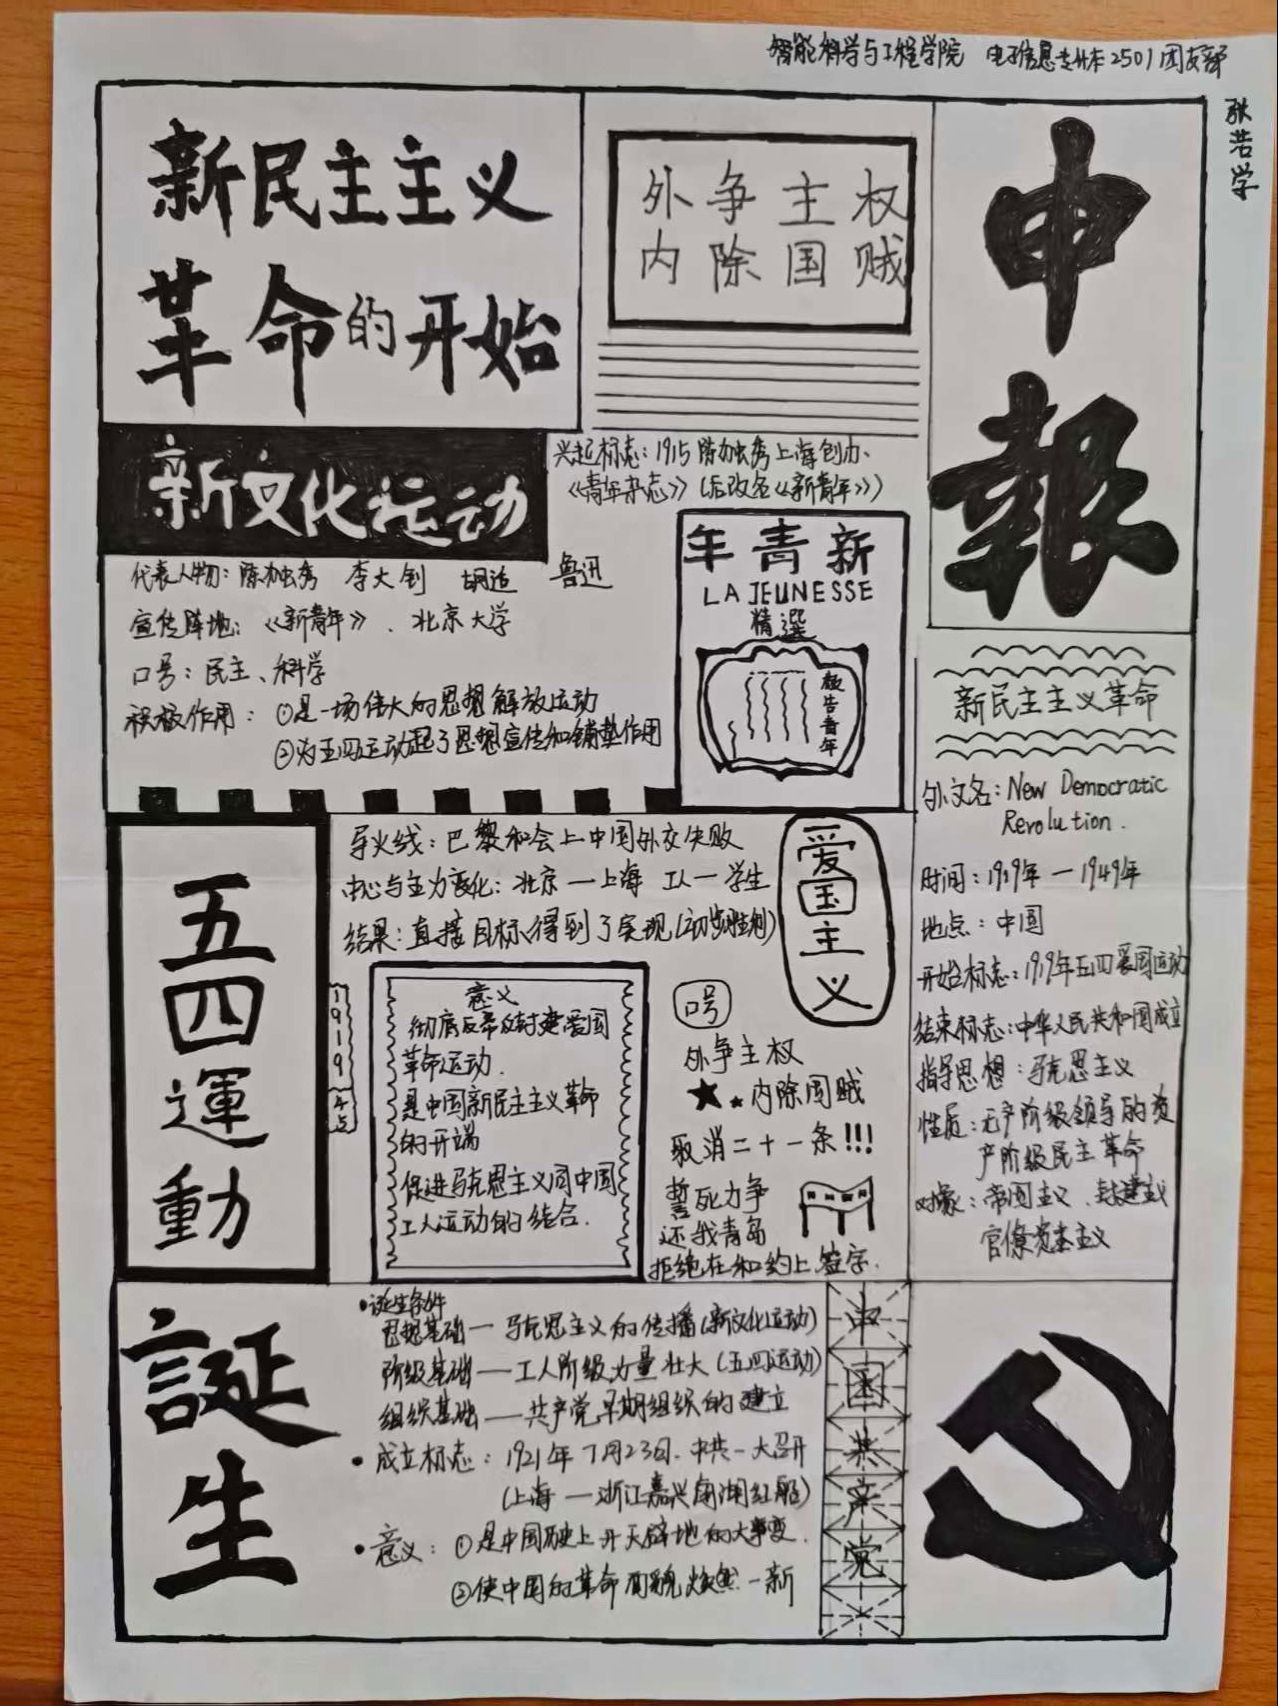 智能科学与工程学院 电子信息专升本2501团支部
张浩学
申報
新民主主义
革命的开始
外争主权
内除国贼
新文化运动
兴起标志：1915陈独秀上海创办
《青年杂志》（后改名《新青年》）
代表人物：陈独秀 李大钊 胡适 鲁迅
宣传阵地：《新青年》、北京大学
口号：民主、科学
积极作用：①是一场伟大的思想解放运动
②为五四运动起了思想宣传和铺垫作用
年青新
LA JEUNESSE
精選
敬告青年
新民主主义革命
外文名：New Democratic
Revolution.
时间：1919年—1949年
地点：中国
开始标志：1919年五四爱国运动
结束标志：中华人民共和国成立
指导思想：马克思主义
性质：无产阶级领导的资
产阶级民主革命
对象：帝国主义、封建主义
官僚资本主义
五四運動
1919
导火线：巴黎和会上中国外交失败
中心与主力变化：北京—上海 工人—学生
结果：直接目标得到了实现（初步胜利）
爱国主义
意义
彻底反帝反封建爱国
革命运动.
是中国新民主主义革命
的开端
促进马克思主义同中国
工人运动的结合.
口号
外争主权
内除国贼
取消二十一条!!!
誓死力争
还我青岛
拒绝在和约上签字.
誕生
•诞生条件
思想基础—马克思主义的传播（新文化运动）
阶级基础—工人阶级力量壮大（五四运动）
组织基础—共产党早期组织的建立
•成立标志：1921年7月23日.中共一大召开
（上海—浙江嘉兴南湖红船）
•意义：①是中国历史上开天辟地的大事变.
②使中国的革命面貌焕然一新
中国共产党